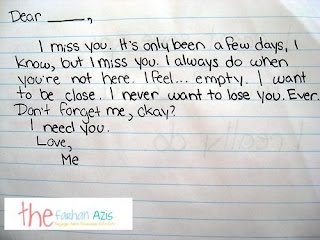 Dear ______,
I miss you. It's only been a few days, I
know, but I miss you. I always do when
you're not here. I feel... empty. I want
to be close. I never want to lose you. Ever.
Don't forget me, okay?
I need you.
Love,
Me
the farhan Azis